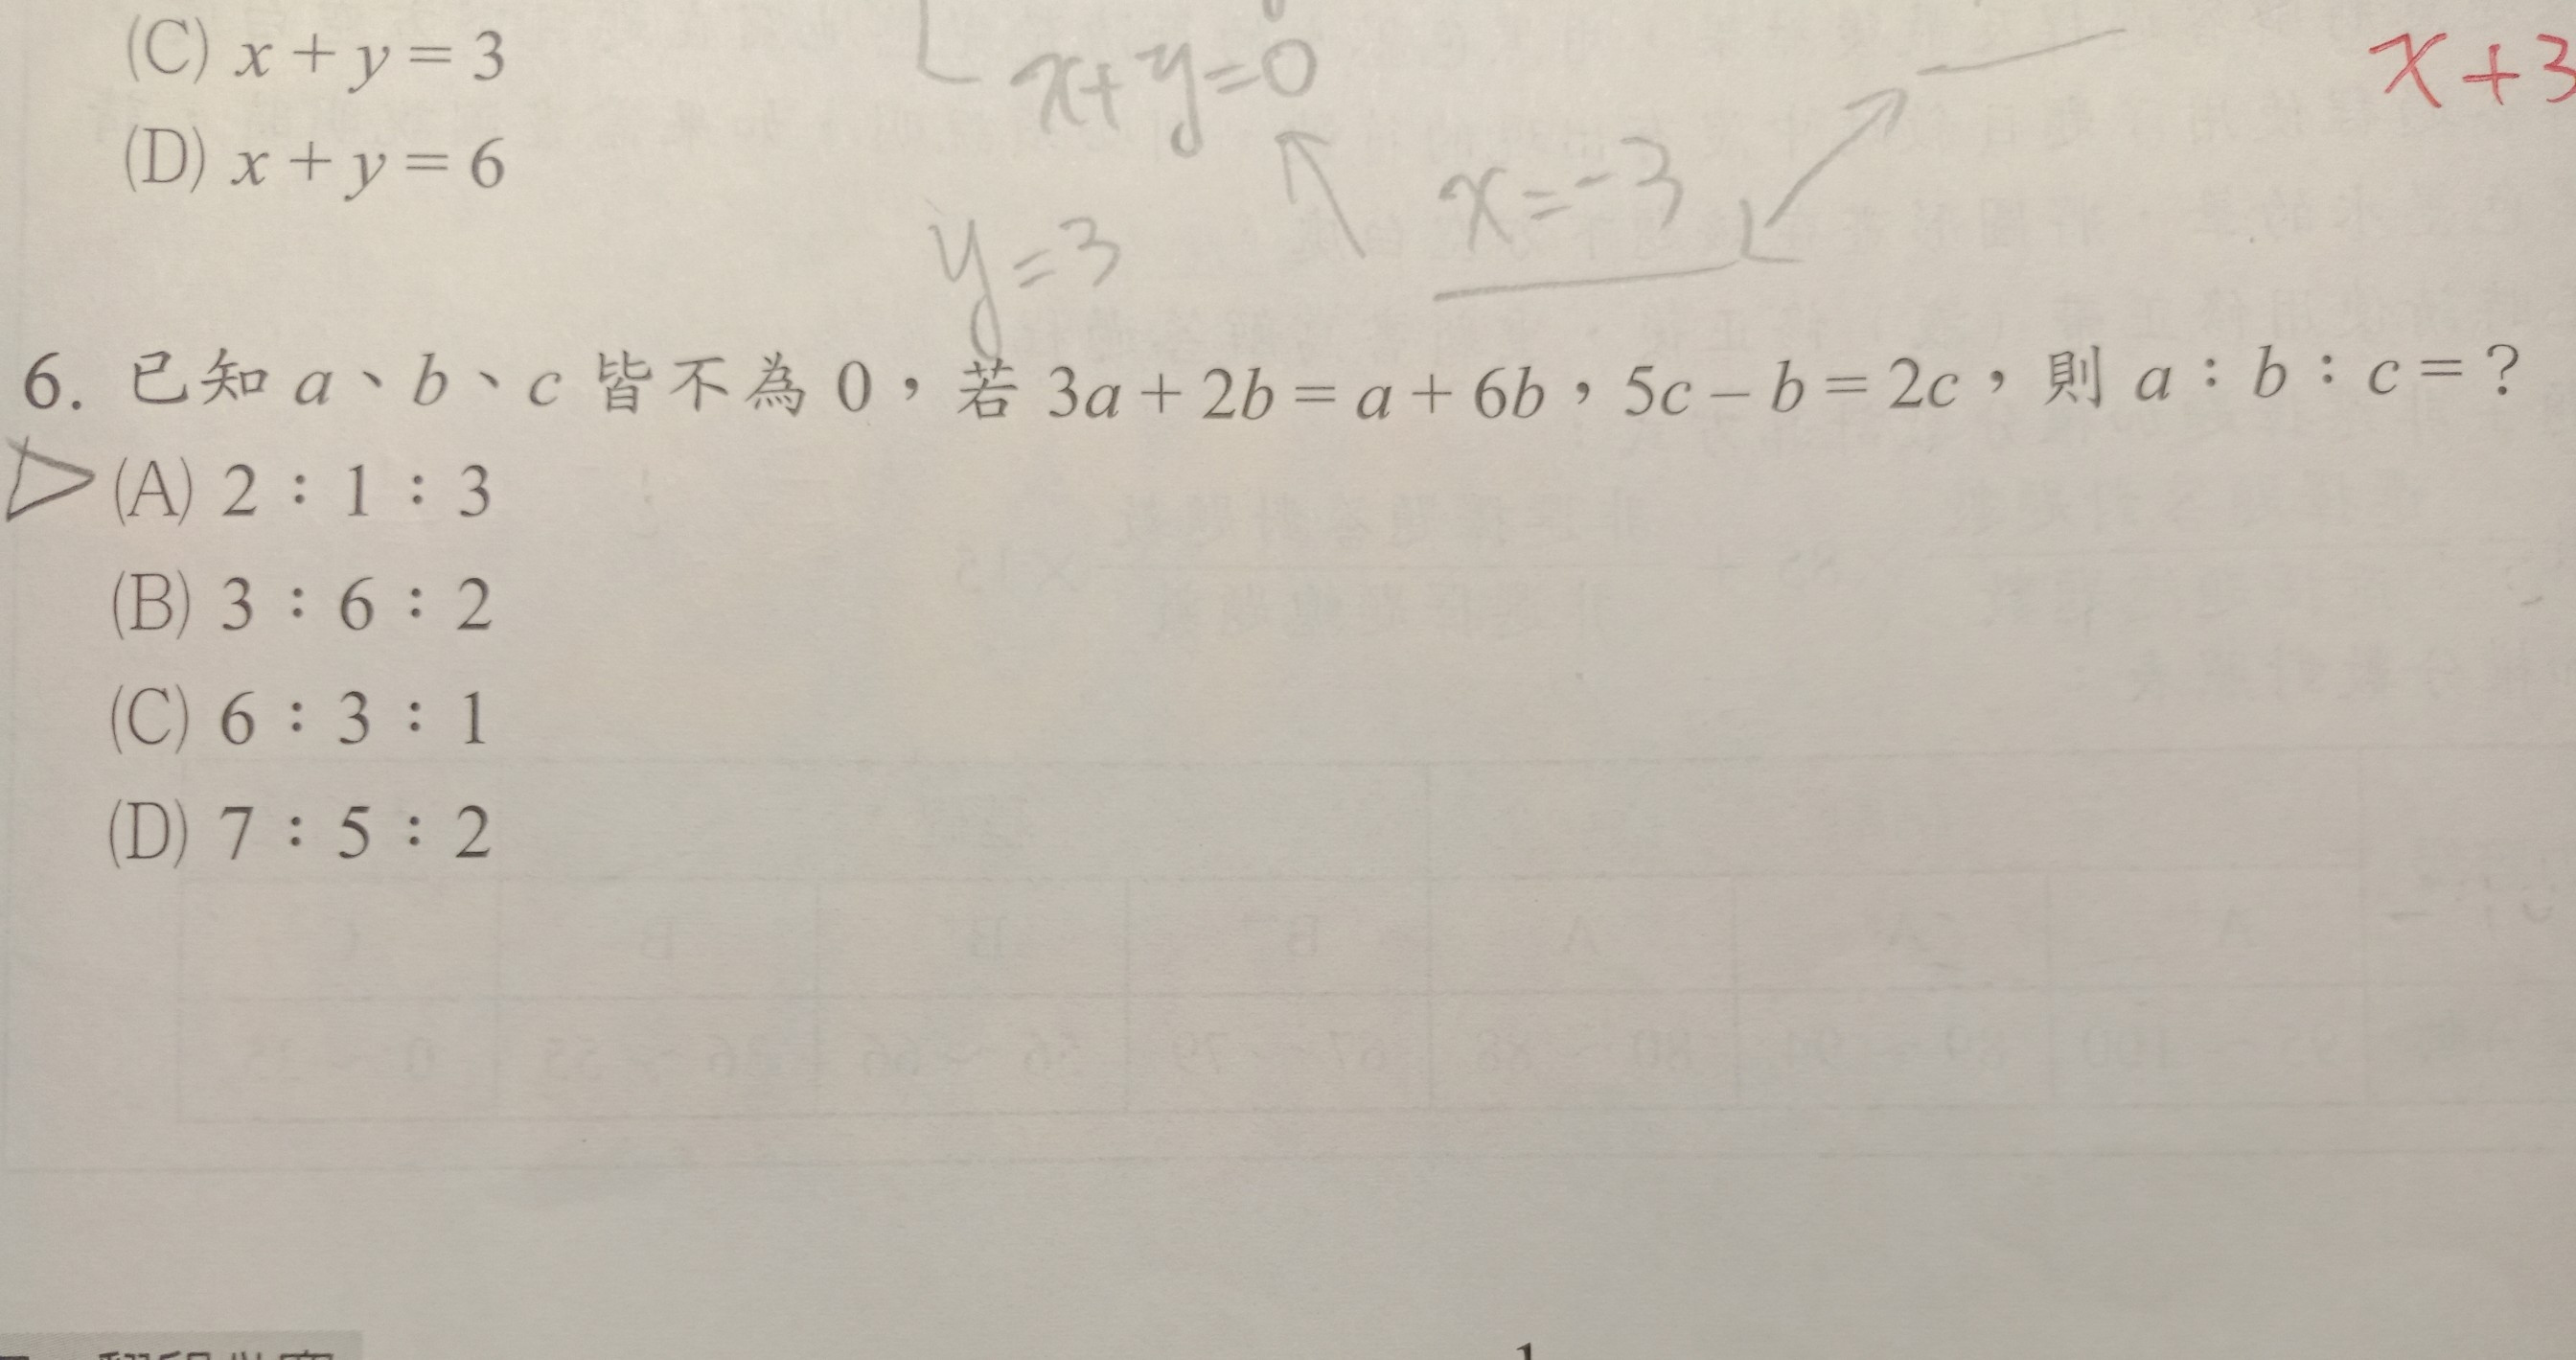 (C) x + y = 3
x+y=0
x+3
(D) x + y = 6
x=-3
y=3
6. 已知 a、b、c 皆不為 0，若 3a + 2b = a + 6b，5c – b = 2c，則 a：b：c = ?
(A) 2：1：3
(B) 3：6：2
(C) 6：3：1
(D) 7：5：2